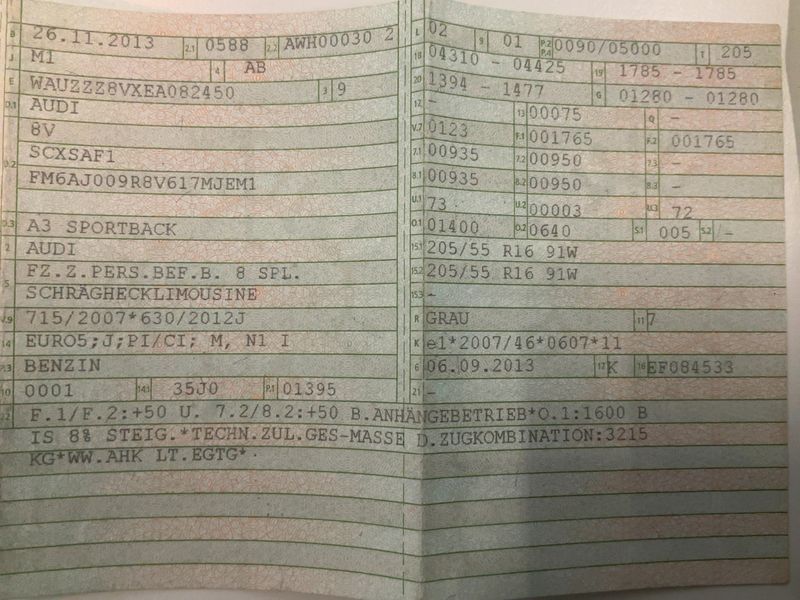 B 26.11.2013 2.1 0588 2.2 AWH00030 2
J M1 4 AB
E WAUZZZ8VXEA082450 3 9
D.1 AUDI
8V
D.2 SCXSAF1
FM6AJ009R8V617MJEM1
D.3 A3 SPORTBACK
2 AUDI
5 FZ.Z.PERS.BEF.B. 8 SPL.
SCHRÄGHECKLIMOUSINE
V.9 715/2007*630/2012J
14 EURO5;J;PI/CI; M, N1 I
P.3 BENZIN
10 0001 14.1 35J0 P.1 01395
L 02 9 01 P.2 P.4 0090/05000 T 205
18 04310 - 04425 19 1785 - 1785
20 1394 - 1477 G 01280 - 01280
12 - 13 00075 Q -
V.7 0123 F.1 001765 F.2 001765
7.1 00935 7.2 00950 7.3 -
8.1 00935 8.2 00950 8.3 -
U.1 73 U.2 00003 U.3 72
O.1 01400 O.2 0640 S.1 005 S.2 -
15.1 205/55 R16 91W
15.2 205/55 R16 91W
15.3 -
R GRAU 11 7
K e1*2007/46*0607*11
6 06.09.2013 17 K 16 EF084533
21 -
22 F.1/F.2:+50 U. 7.2/8.2:+50 B.ANHÄNGEBETRIEB*O.1:1600 B
IS 8% STEIG.*TECHN.ZUL.GES-MASSE D.ZUGKOMBINATION:3215
KG*WW.AHK LT.EGTG*